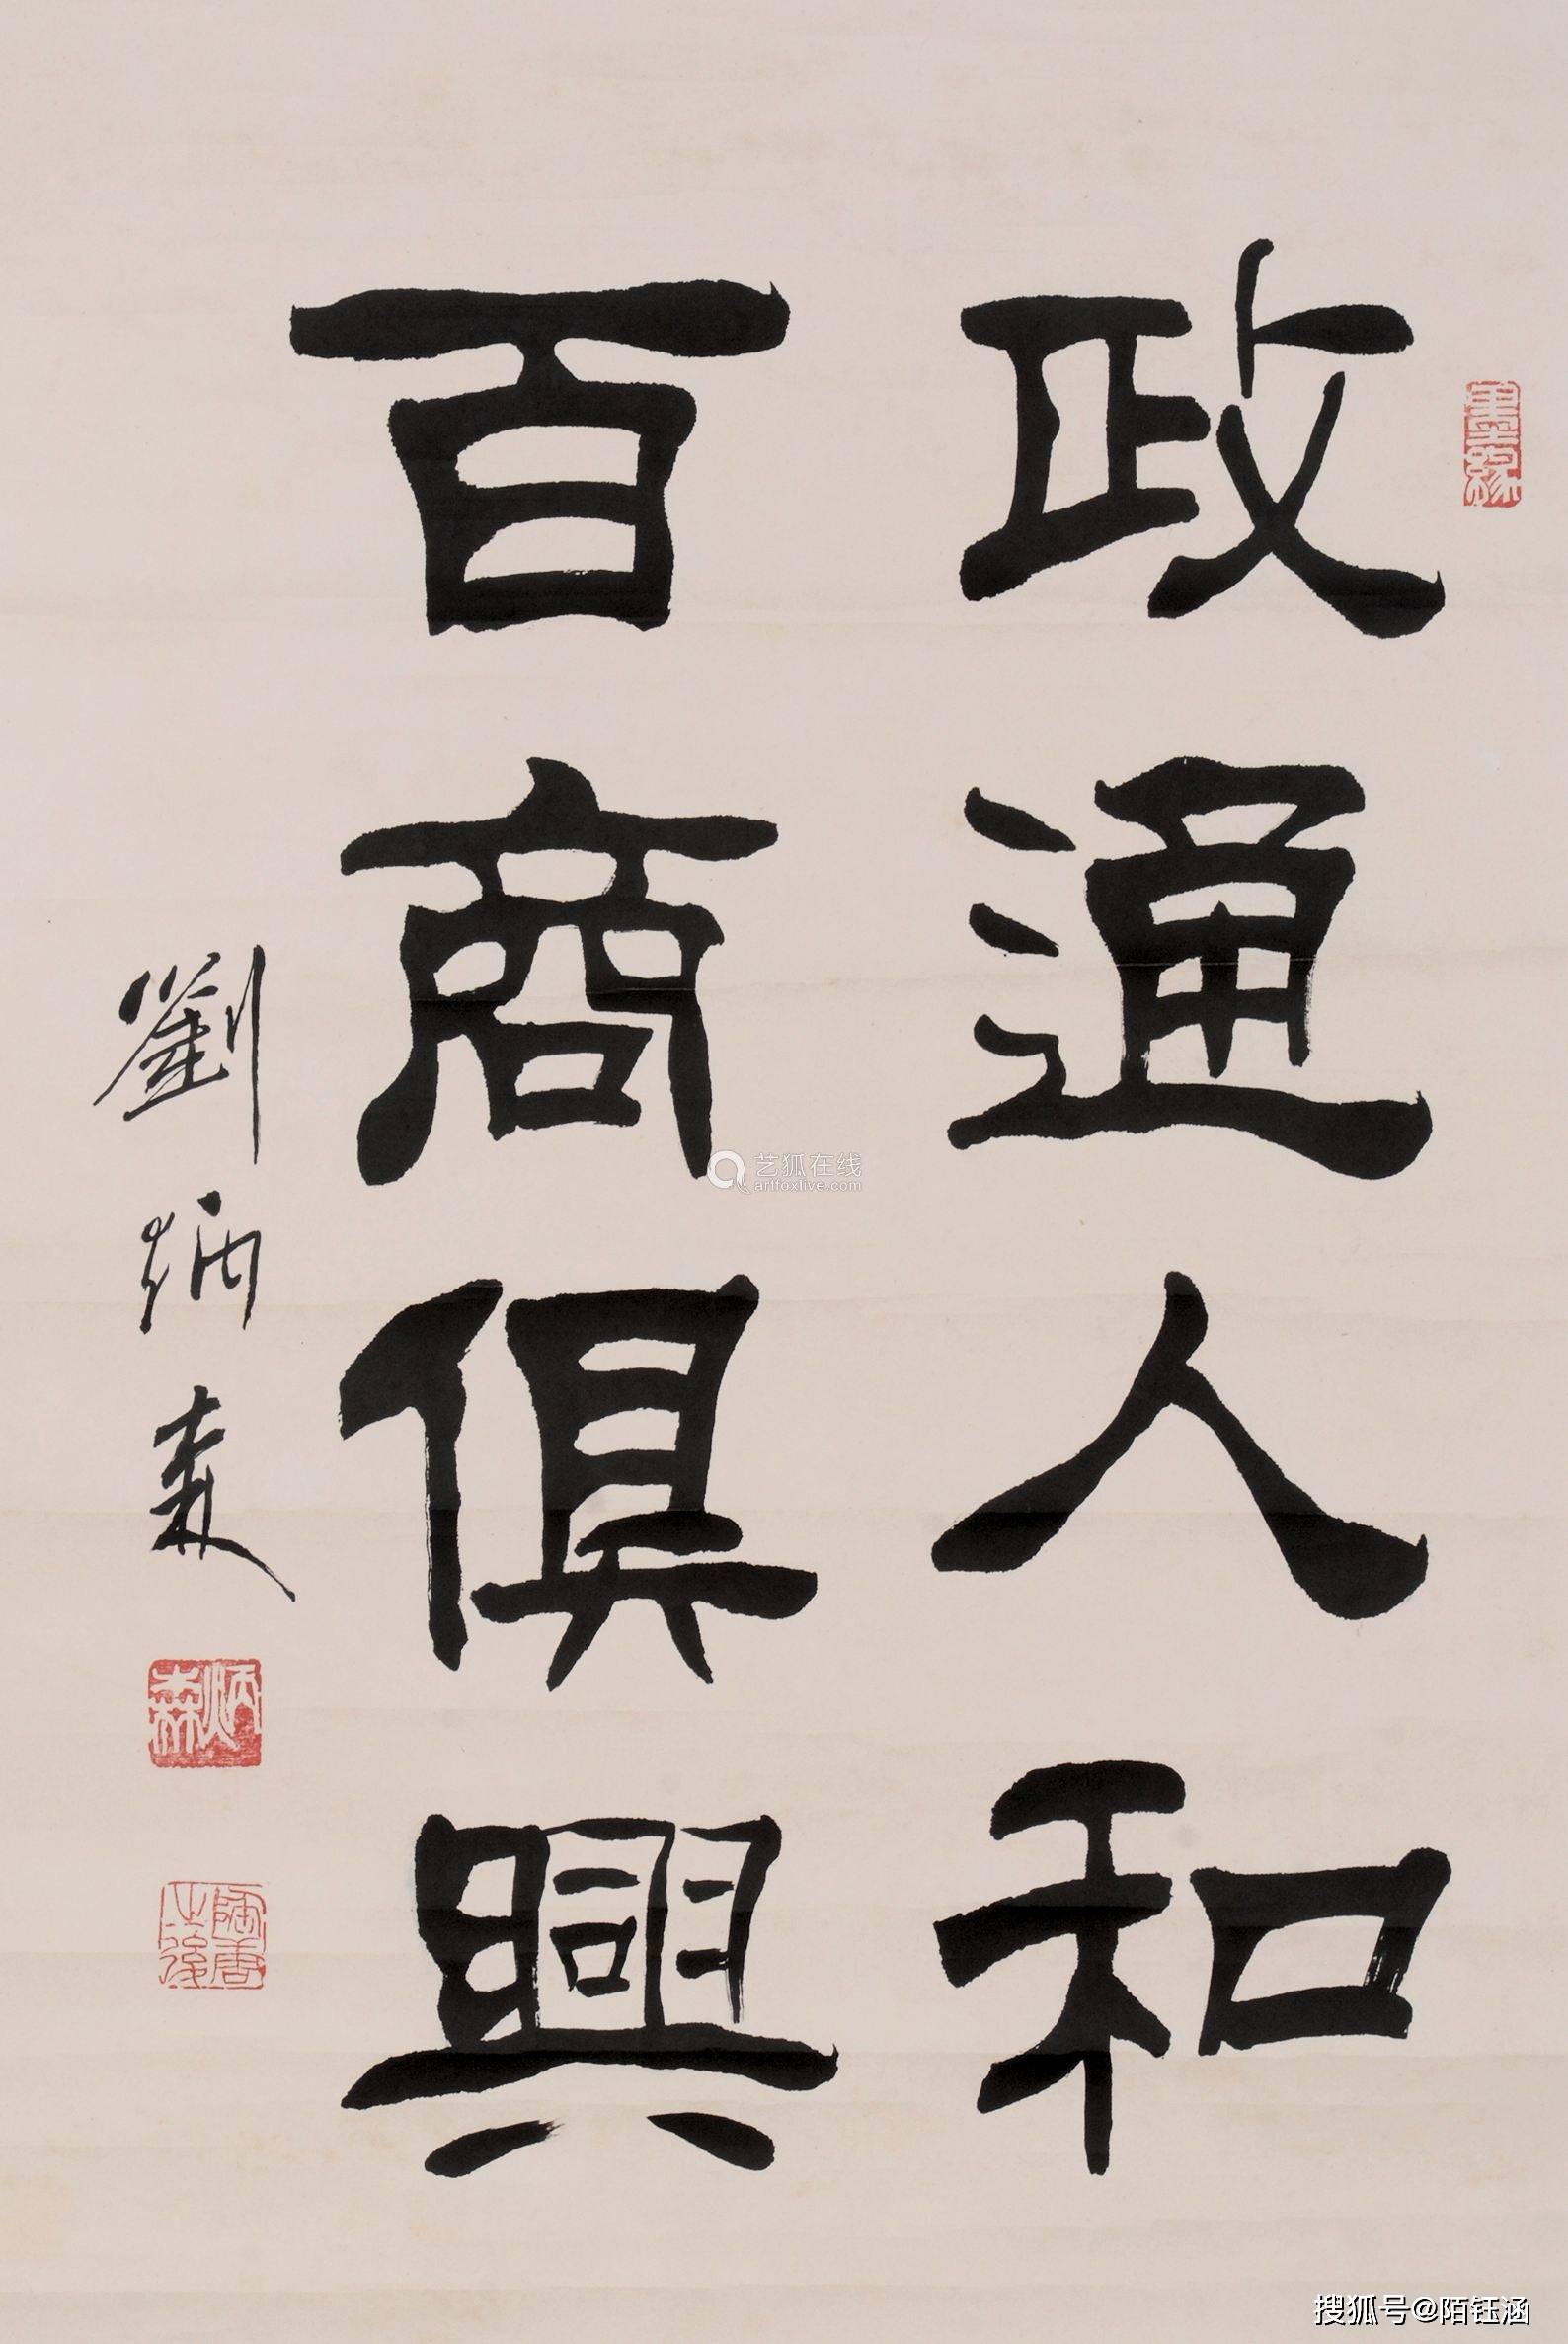 政通人和
百商俱興
劉炳森
墨緣
炳森
陶唐之後
艺狐在线
artfoxlive.com
搜狐号@陌钰涵